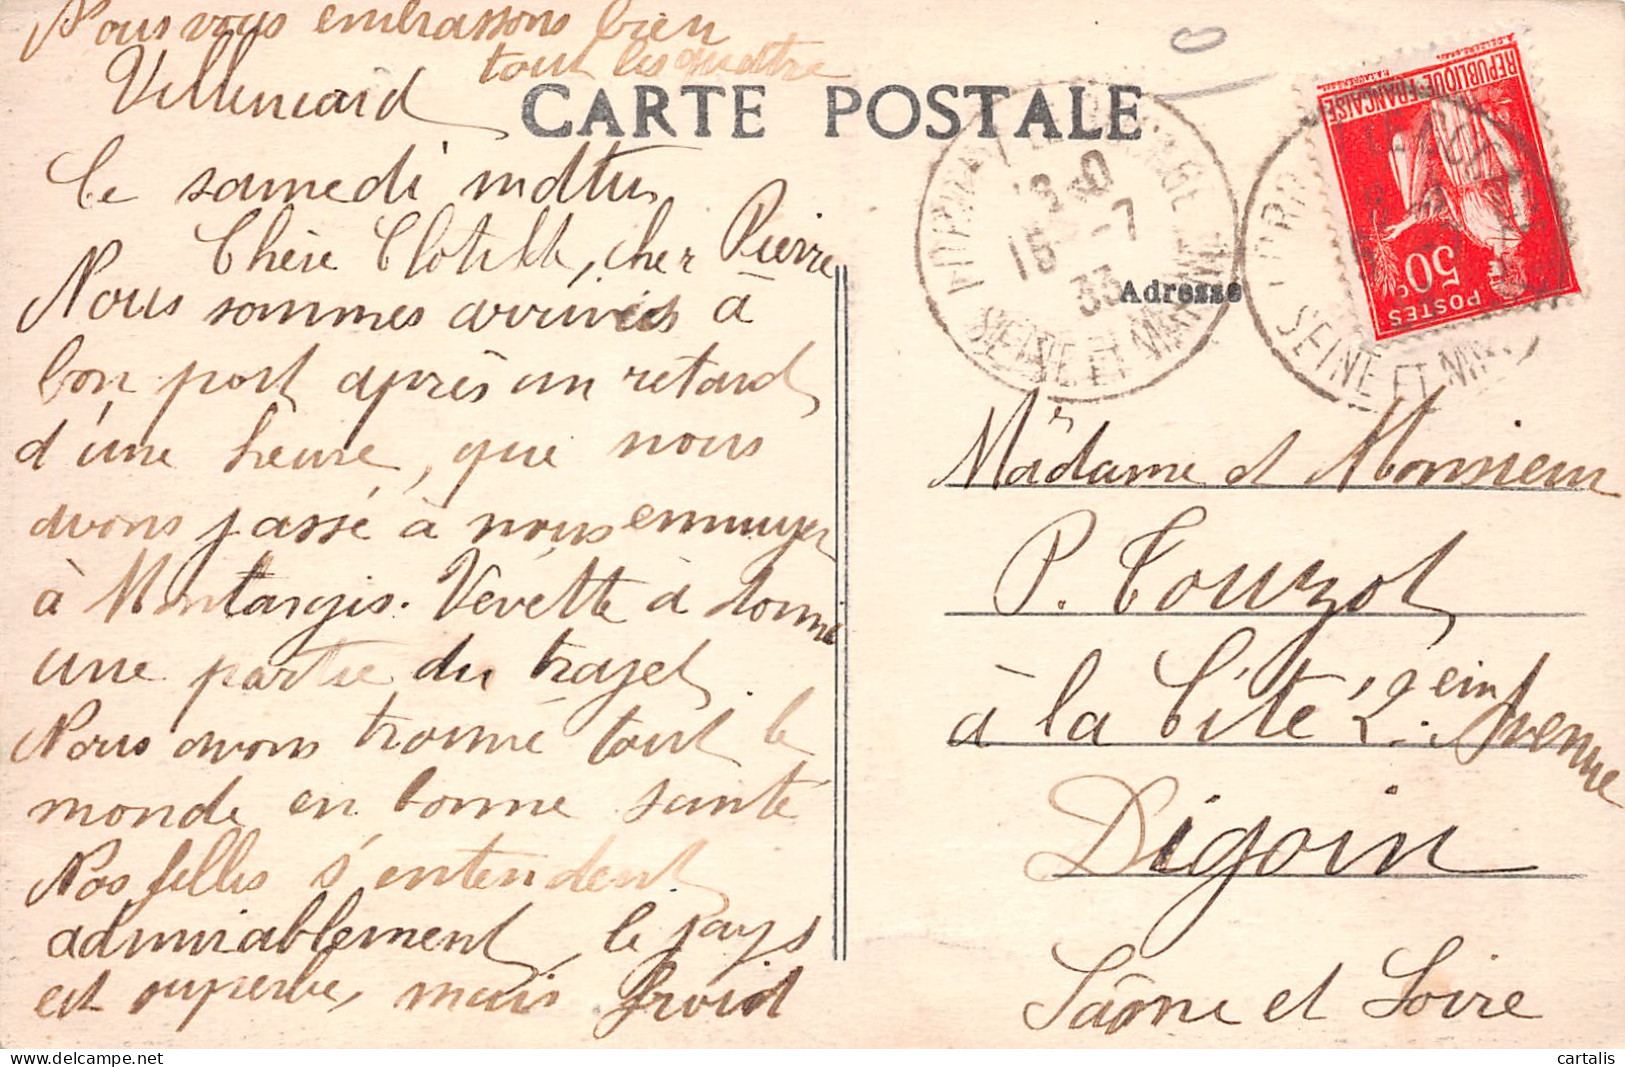 Nous vous embrassons bien
tous les quattre
Villemeard
CARTE POSTALE
le samedi matin
Chère Clotilde, cher Pierre
Nous sommes arrivés à
bon port après un retard
d'une heure, que nous
avons passé à nous ennuyer
à Montargis. Vévette à dormi
une partie du trajet.
Nous avons trouvé tout le
monde en bonne santé
Nos filles s'entendent
admirablement, le pays
est superbe, mais froid
15 -7
33
SEINE ET MARNE
Adresse
REPUBLIQUE FRANÇAISE
50c
POSTES
SEINE ET
Madame et Monsieur
P. Touzot
à la Cité 2 Avenue
Digoin
Saône et Loire
cartalis